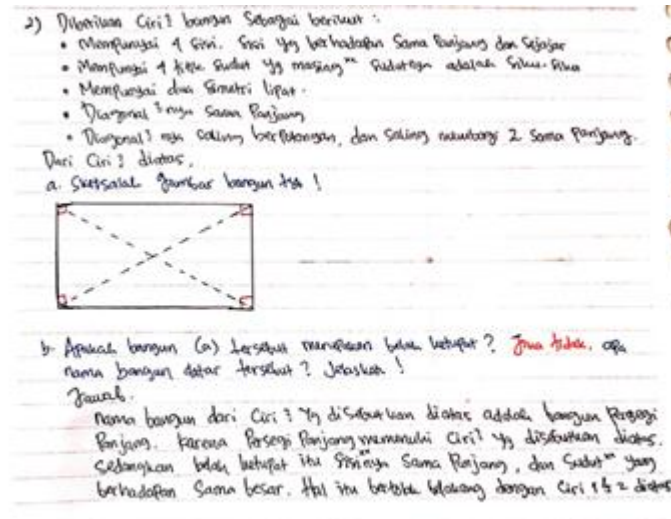 2) Diberikan Ciri² bangun Sebagai berikut :
• Mempunyai 4 Sisi. Sisi Yg berhadapan Sama Panjang dan Sejajar
• Mempunyai 4 titik Sudut Yg masing"² Sudutnya adalah Siku-Siku
• Mempunyai dua Simetri lipat.
• Diagonal²nya Sama Panjang
• Diagonal² nya Saling berpotongan, dan Saling membagi 2 Sama Panjang.
Dari Ciri² diatas,
a. Sketsalah gambar bangun tsb !
b. Apakah bangun (a) tersebut merupakan belah ketupat ? Jika tidak, apa
nama bangun datar tersebut ? Jelaskan !
Jawab.
Nama bangun dari Ciri² Yg disebutkan diatas adalah bangun Persegi
Panjang. Karena Persegi Panjang memenuhi Ciri² yg disebutkan diatas.
Sedangkan belah ketupat itu Sisinya Sama Panjang, dan Sudut"² yang
berhadapan Sama besar. Hal itu bertolak belakang dengan Ciri 1 & 2 diatas